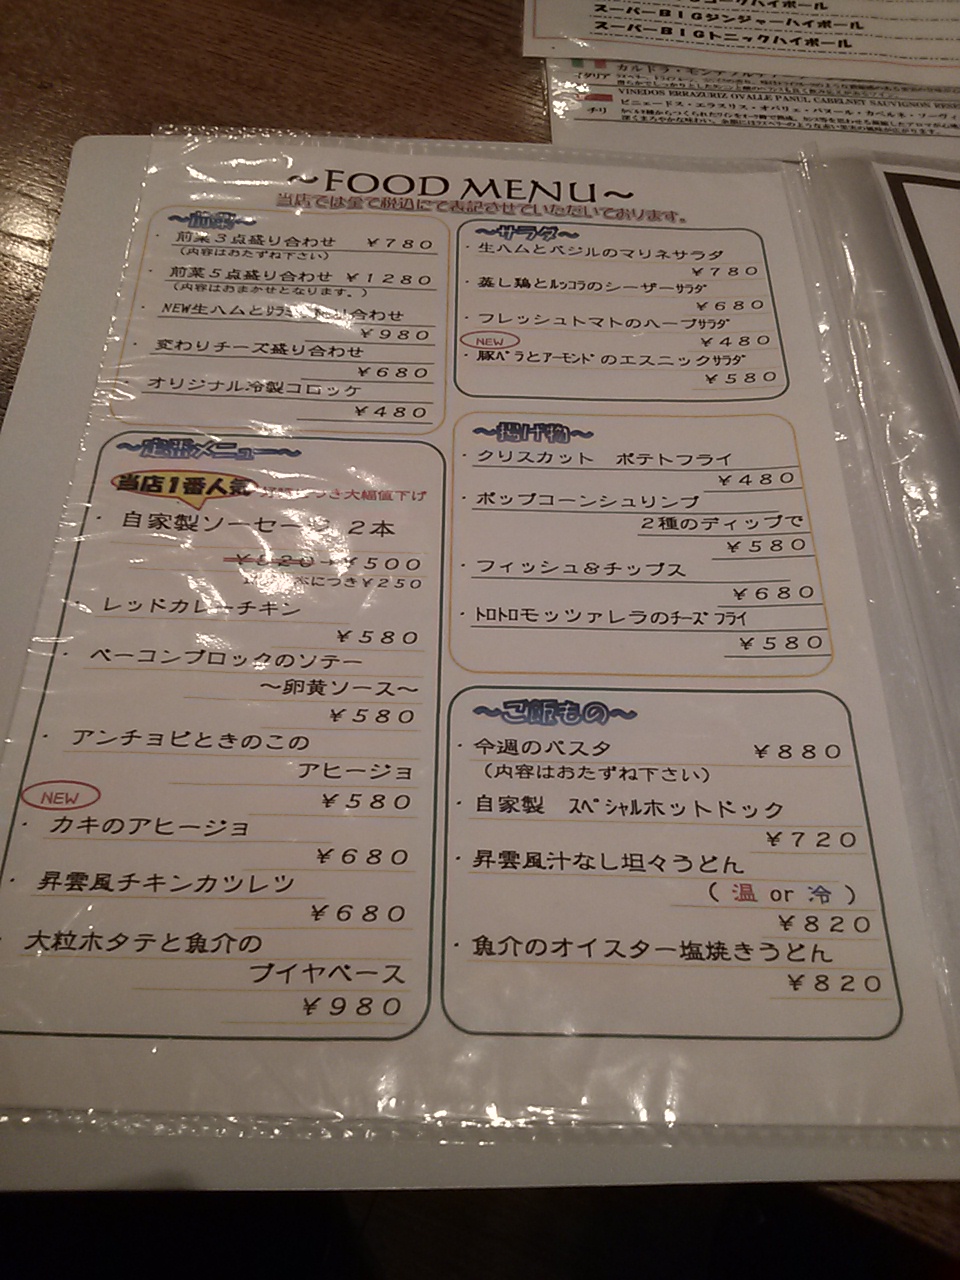 スーパーBIGジンジャーハイボール
スーパーBIGトニックハイボール
チリ
VINEDOS ERRAZURIZ OVALLE PANUL CABELNET SAUVIGNON
~FOOD MENU~
当店では全て税込にて表記させていただいております。
~前菜~
・前菜3点盛り合わせ ¥780
(内容はおたずね下さい)
・前菜5点盛り合わせ ¥1280
(内容はおまかせとなります。)
・NEW生ハムとサラミ盛り合わせ
¥980
・変わりチーズ盛り合わせ
¥680
・オリジナル冷製コロッケ
¥480
~定番メニュー~
当店1番人気 につき大幅値下げ
・自家製ソーセージ 2本
¥520→¥500
本につき¥250
・レッドカレーチキン
¥580
・ベーコンブロックのソテー
~卵黄ソース~
¥580
・アンチョビときのこの
アヒージョ
¥580
NEW
・カキのアヒージョ
¥680
・昇雲風チキンカツレツ
¥680
・大粒ホタテと魚介の
ブイヤベース
¥980
~サラダ~
・生ハムとバジルのマリネサラダ
¥780
・蒸し鶏とルッコラのシーザーサラダ
¥680
・フレッシュトマトのハーブサラダ
¥480
NEW
・豚バラとアーモンドのエスニックサラダ
¥580
~揚げ物~
・クリスカット ポテトフライ
¥480
・ポップコーンシュリンプ
2種のディップで
¥580
・フィッシュ&チップス
¥680
・トロトロモッツァレラのチーズフライ
¥580
~ご飯もの~
・今週のパスタ ¥880
(内容はおたずね下さい)
・自家製 スペシャルホットドック
¥720
・昇雲風汁なし坦々うどん
(温 or 冷)
¥820
・魚介のオイスター塩焼きうどん
¥820